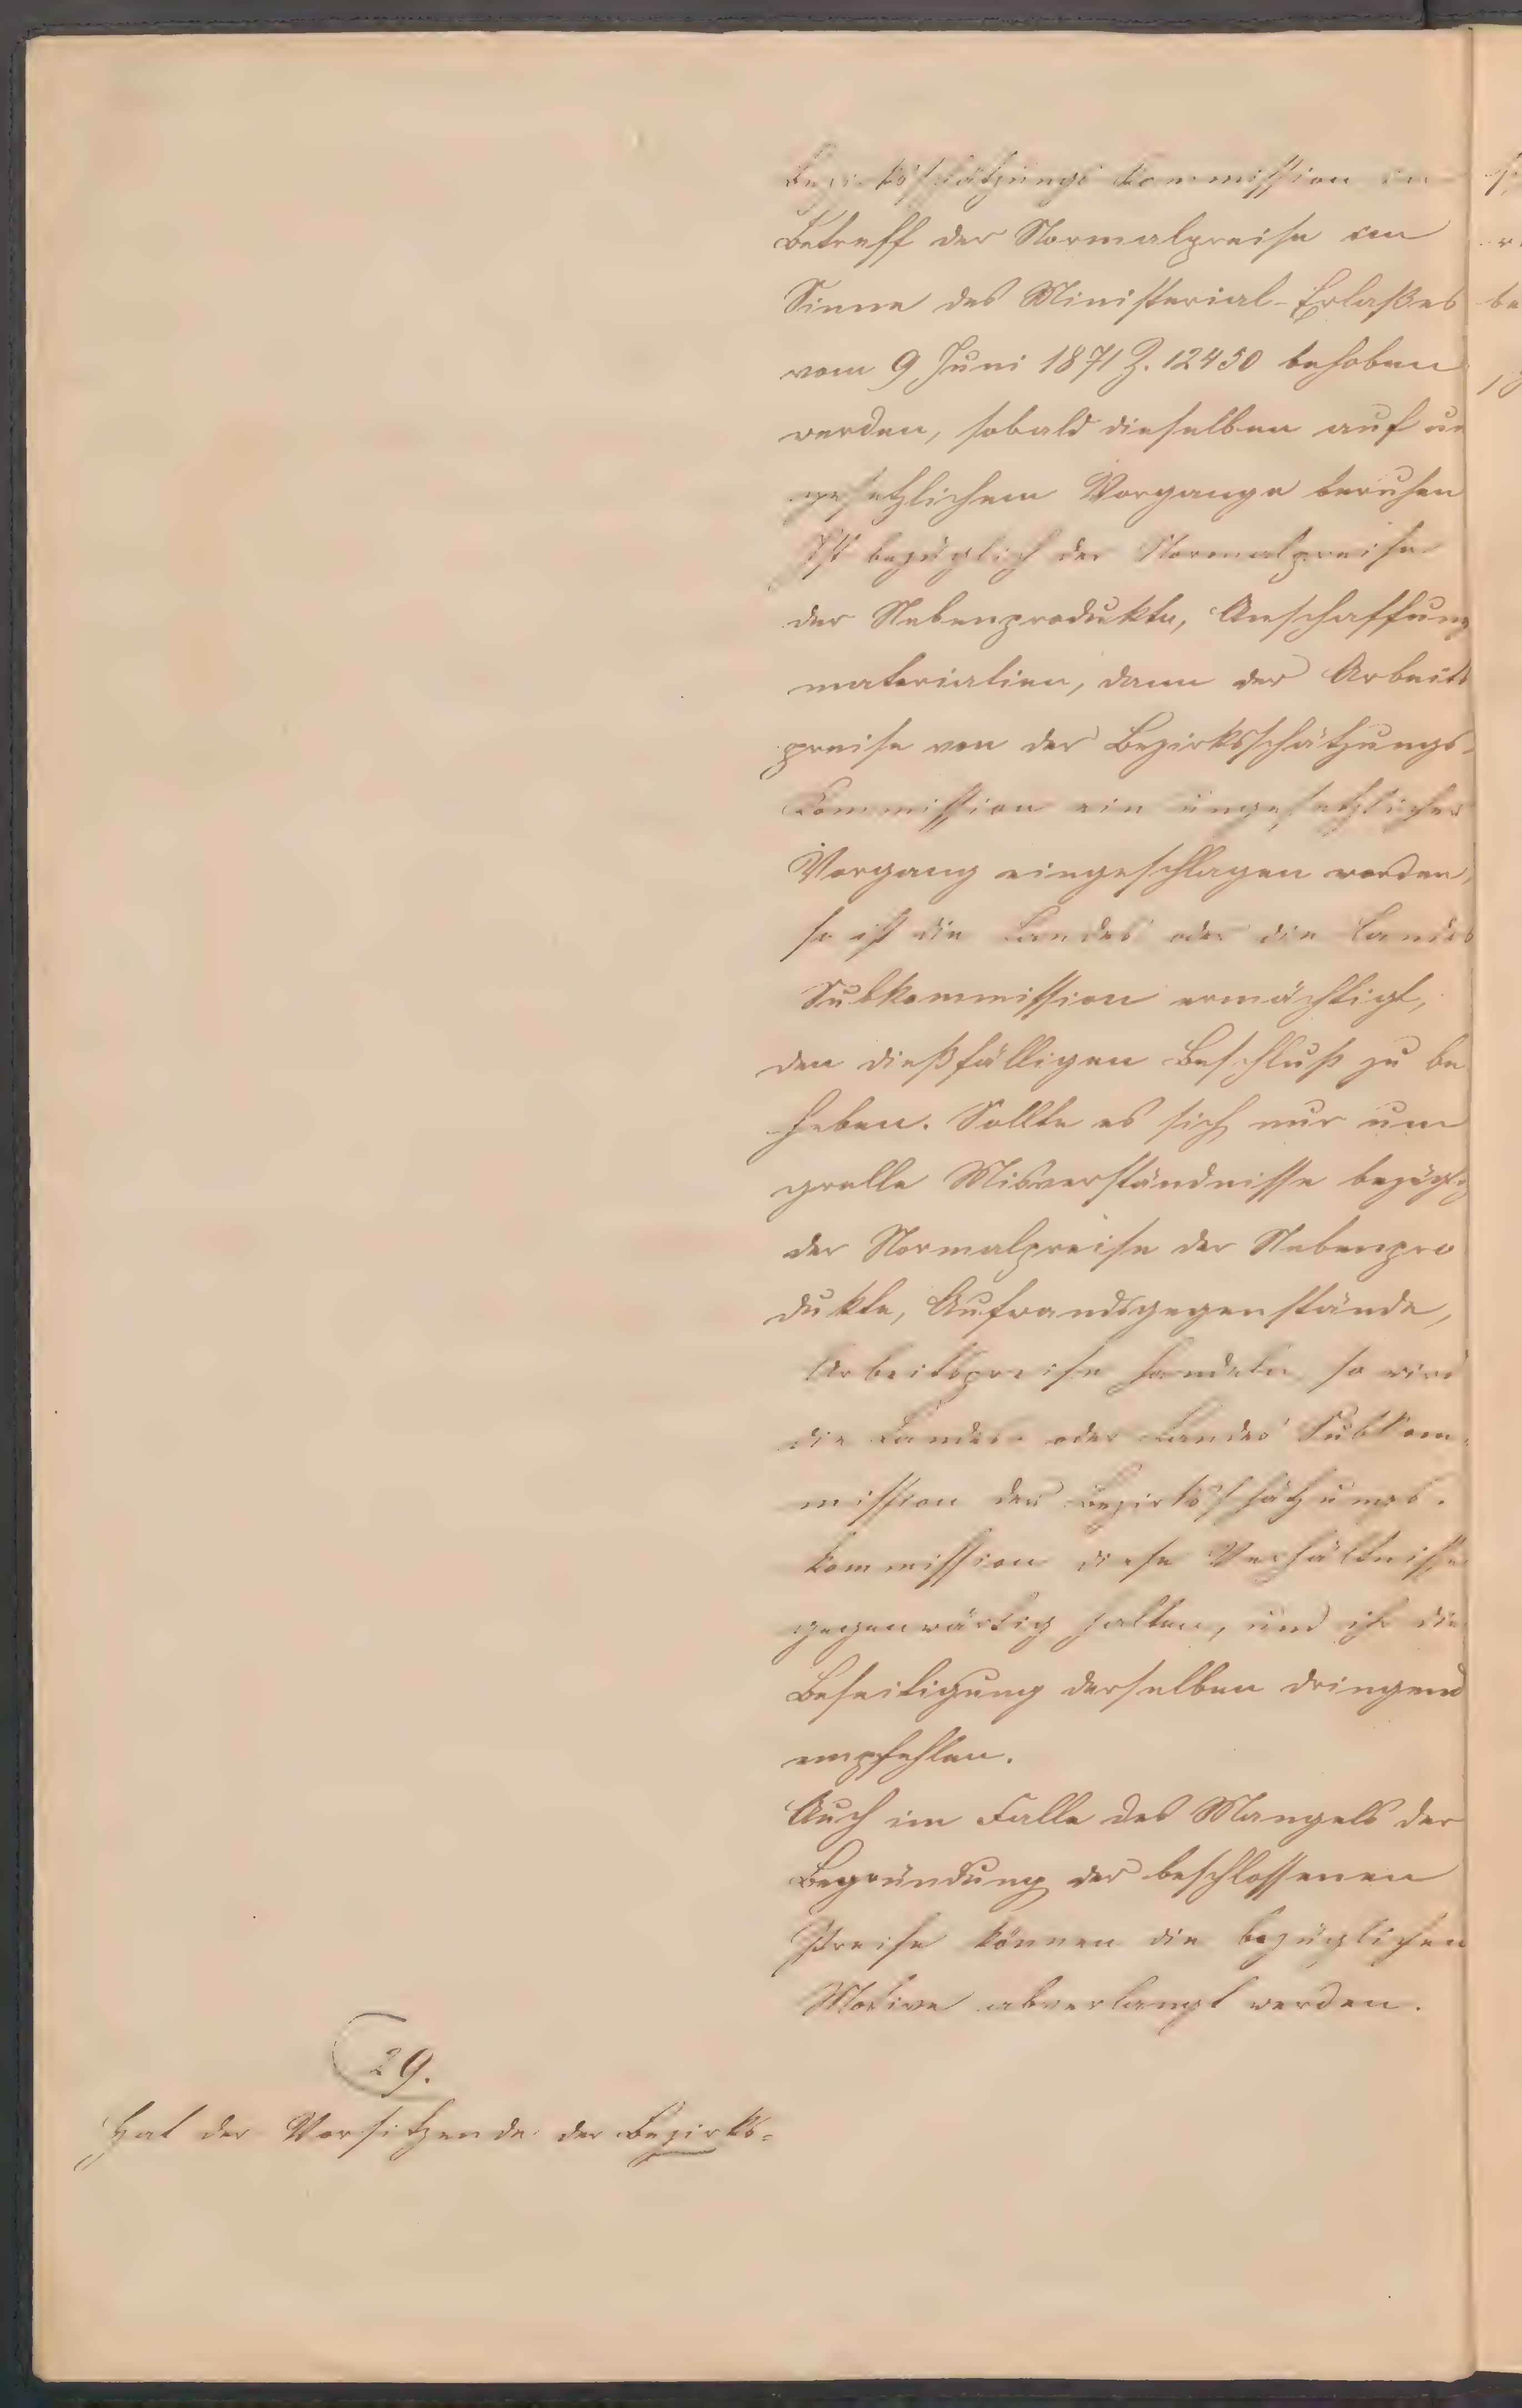 Bezirksschätzungs Kommission in
Betreff der Normalpreise im
Sinne des Ministerial-Erlaßes
vom 9 Juni 1871 Z. 12450 behoben
werden, sobald dieselben auf un
gesetzlichem Vorgange beruhen
Ist bezüglich der Normalpreise
der Nebenprodukte, Anschaffung
materialien, dann der Arbeits
preise von der Bezirksschätzungs-
Commission ein ungesetzlicher
Vorgang eingeschlagen worden,
so ist die Landes oder die Landes
Subkommission ermächtigt,
den dießfälligen Beschluß zu be
heben. Sollte es sich nur um
grelle Misverständnisse bezüglich
der Normalpreise der Nebenpro
dukte, Aufwandsgegenstände,
Arbeitspreise handeln, so wird
die Landes- oder Landes Subkom-
mission der Bezirksschätzungs-
kommission diese Verhältnisse
gegenwärtig halten, und ihr die
Beseitigung derselben dringend
empfehlen.
Auch im Falle des Mangels der
Begründung der beschlossenen
Preise können die bezüglichen
Motive abverlangt werden.
29.
Hat der Vorsitzende der Bezirks-